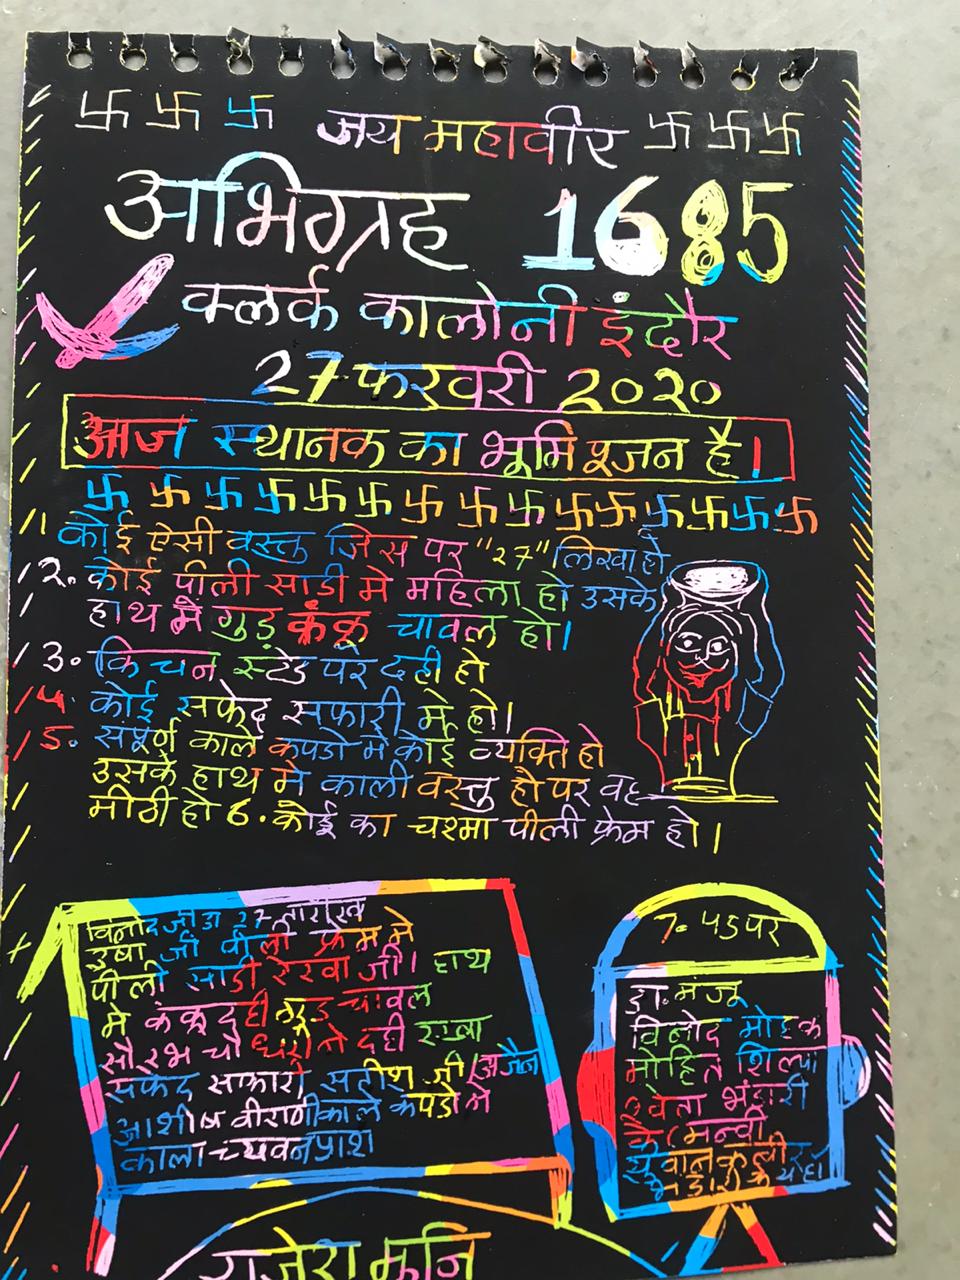 जय महावीर
अभिग्रह 1685
क्लर्क कालोनी इंदौर
27 फरवरी 2020
आज स्थानक का भूमि पूजन है।
1 कोई ऐसी वस्तु जिस पर "27" लिखा हो
2. कोई पीली साडी मे महिला हो उसके
हाथ मे गुड़ कंकू चावल हो।
3. किचन स्टेंड पर दही हो
4. कोई सफेद सफारी मे हो।
5. संपूर्ण काले कपडो मे कोई व्यक्ति हो
उसके हाथ मे काली वस्तु हो पर वह
मीठी हो 6. कोई का चश्मा पीली फ्रेम हो।
विनोद जी 27 तारीख
उषा जी पीली फ्रेम मे
पीली साडी रेखा जी। हाथ
मे कंकू दही गुड चावल
सौरभ चौधरी ने दही रखा
सफेद सफारी सतीश जी
आशीष वीराणी काले कपडो मे
काला च्यवनप्राश
7. 45 पर
डा. मंजू
विनोद मोहक
मोहित शिल्पा
श्वेता भंडारी
के यहाँ
मुनि